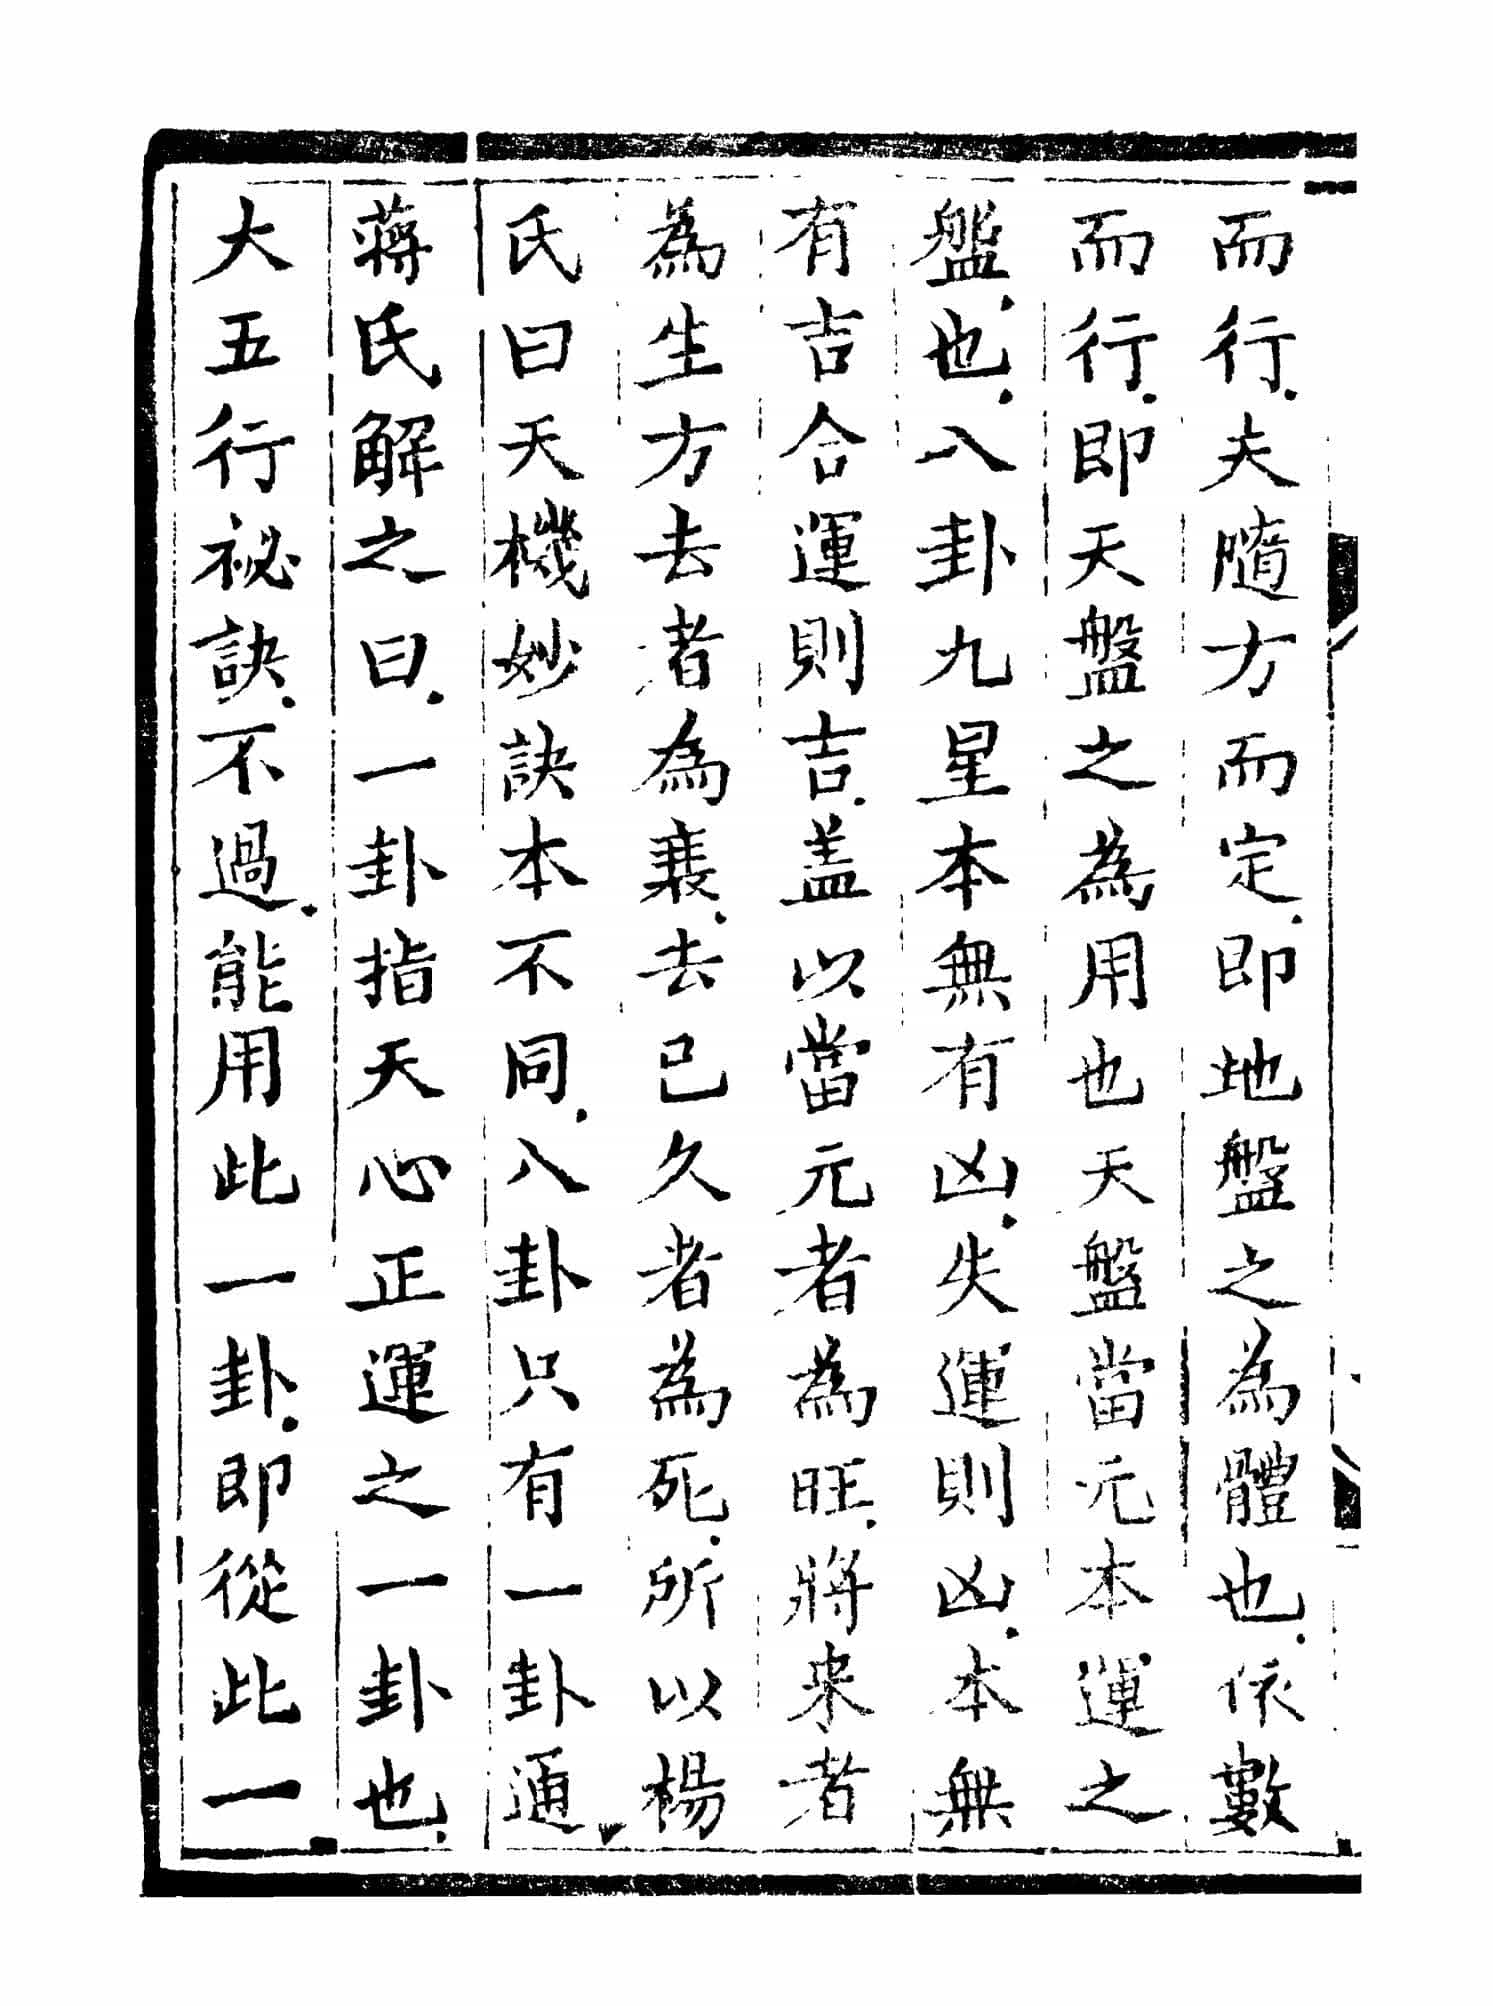 而行.夫隨方而定.即地盤之為體也.依數
而行.即天盤之為用也天盤當元本運之
盤.也.八卦九星本無有凶.失運則凶.本無
有吉合運則吉.盖以當元者為旺.將来者
為生方去者為衰.去已久者為死.所以楊
氏曰天機妙訣本不同.八卦只有一卦通
蔣氏解之曰.一卦指天心正運之一卦也.
大五行祕訣.不過.能用此一卦.即從此一